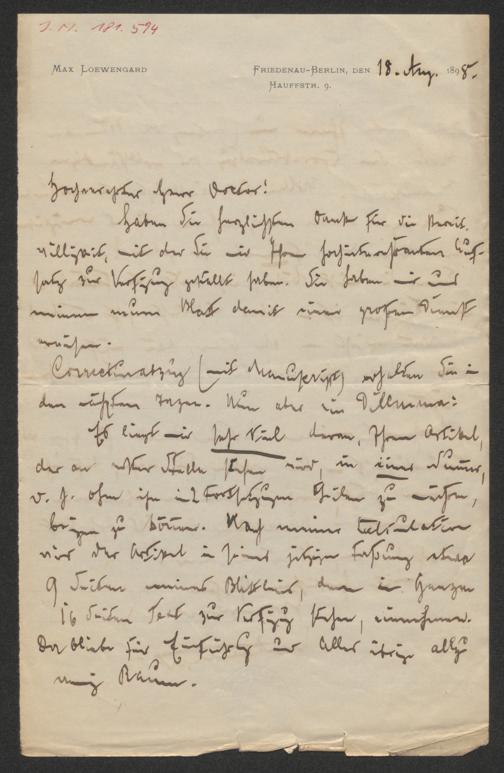 I. N. 181.594
MAX LOEWENGARD
FRIEDENAU-BERLIN, DEN 18. Aug. 1898.
HAUFFSTR. 9.
Hochverehrter Herr Doctor!
Haben Sie herzlichsten Dank für die Bereit-
willigkeit, mit der Sie mir Ihren hochinteressanten Auf-
satz zur Verfügung gestellt haben. Sie haben mir und
meinem neuen Blatt damit einen großen Dienst
erwiesen.
Correcturabzug (mit Manuscript) erhalten Sie in
den nächsten Tagen. Nun aber ein Dillemma:
Es liegt mir sehr viel daran, Ihren Artikel,
der an erster Stelle stehen wird, in einer Nummer,
d. h. ohne ihn in 2 Fortsetzungen theilen zu müssen,
bringen zu können. Nach meiner Calculation
wird der Artikel in seiner jetzigen Faßung etwa
9 Seiten meines Blättleins, dem im Ganzen
16 Seiten Text zur Verfügung stehen, einnehmen.
Da bliebe für Einführung und alles übrige allzu
wenig Raum.